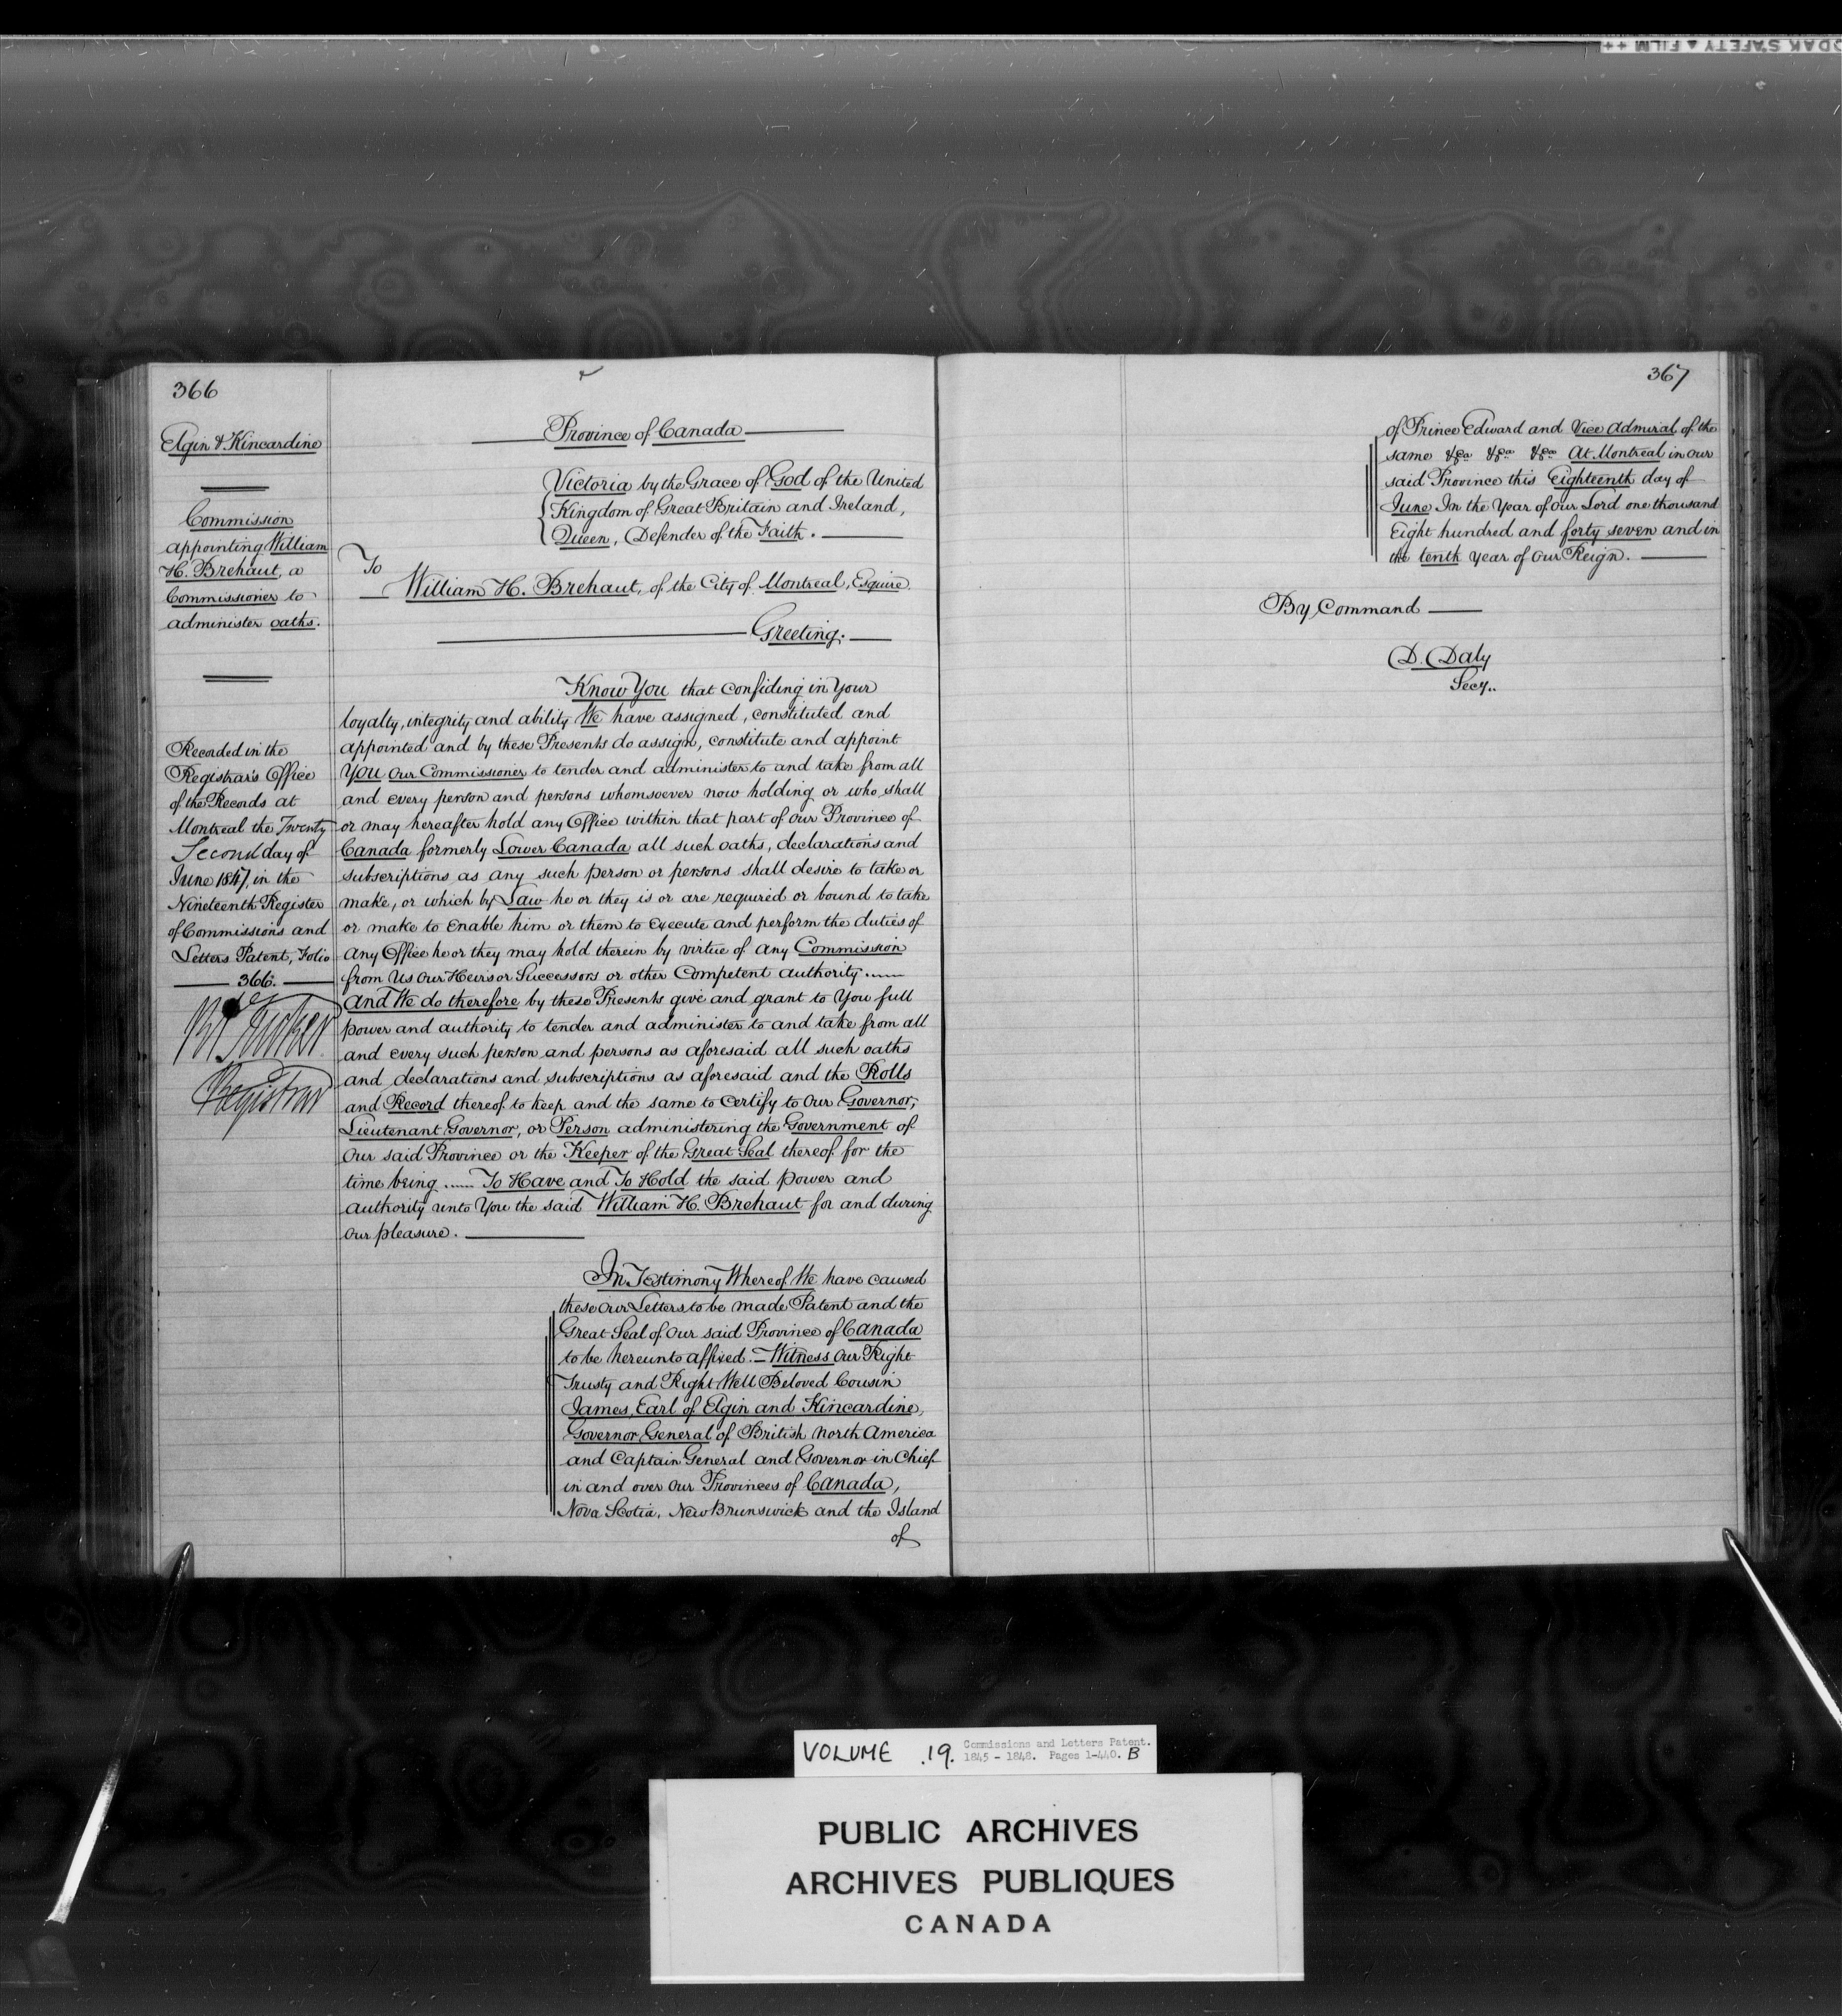 KODAK SAFETY ▲ FILM ++
366
Elgin & Kincardine
Commission
appointing William
H. Brehaut, a
Commissioner to
administer oaths.
Recorded in the
Registrar's Office
of the Records at
Montreal the Twenty
Second day of
June 1847, in the
Nineteenth Register
of Commissions and
Letters Patent, Folio
366.
Registrar
Province of Canada
Victoria by the Grace of God of the United
Kingdom of Great Britain and Ireland,
Queen, Defender of the Faith.
To
William H. Brehaut, of the City of Montreal, Esquire.
Greeting.
Know You that confiding in Your
loyalty, integrity and ability We have assigned, constituted and
appointed and by these Presents do assign, constitute and appoint
You our Commissioner to tender and administer to and take from all
and every person and persons whomsoever now holding or who shall
or may hereafter hold any Office within that part of our Province of
Canada formerly Lower Canada all such oaths, declarations and
subscriptions as any such person or persons shall desire to take or
make, or which by Law he or they is or are required or bound to take
or make to enable him or them to execute and perform the duties of
any Office he or they may hold therein by virtue of any Commission
from Us Our Heirs or Successors or other Competent authority......
And We do therefore by these Presents give and grant to You full
power and authority to tender and administer to and take from all
and every such person and persons as aforesaid all such oaths
and declarations and subscriptions as aforesaid and the Rolls
and Record thereof to keep and the same to Certify to Our Governor,
Lieutenant Governor, or Person administering the Government of
Our said Province or the Keeper of the Great Seal thereof for the
time being ...... To Have and To Hold the said power and
authority unto You the said William H. Brehaut for and during
our pleasure.
In Testimony Whereof We have caused
these Our Letters to be made Patent and the
Great Seal of Our said Province of Canada
to be hereunto affixed. Witness Our Right
Trusty and Right Well Beloved Cousin
James, Earl of Elgin and Kincardine,
Governor General of British North America
and Captain General and Governor in Chief
in and over our Provinces of Canada,
Nova Scotia, New Brunswick and the Island
of
367
of Prince Edward and Vice Admiral of the
same &ca &ca &ca At Montreal in our
said Province this Eighteenth day of
June In the Year of Our Lord one thousand
Eight hundred and forty seven and in
the tenth Year of Our Reign.
By Command
D. Daly
Secy..
VOLUME .19. Commissions and Letters Patent.
1845 - 1848. Pages 1-440. B
PUBLIC ARCHIVES
ARCHIVES PUBLIQUES
CANADA